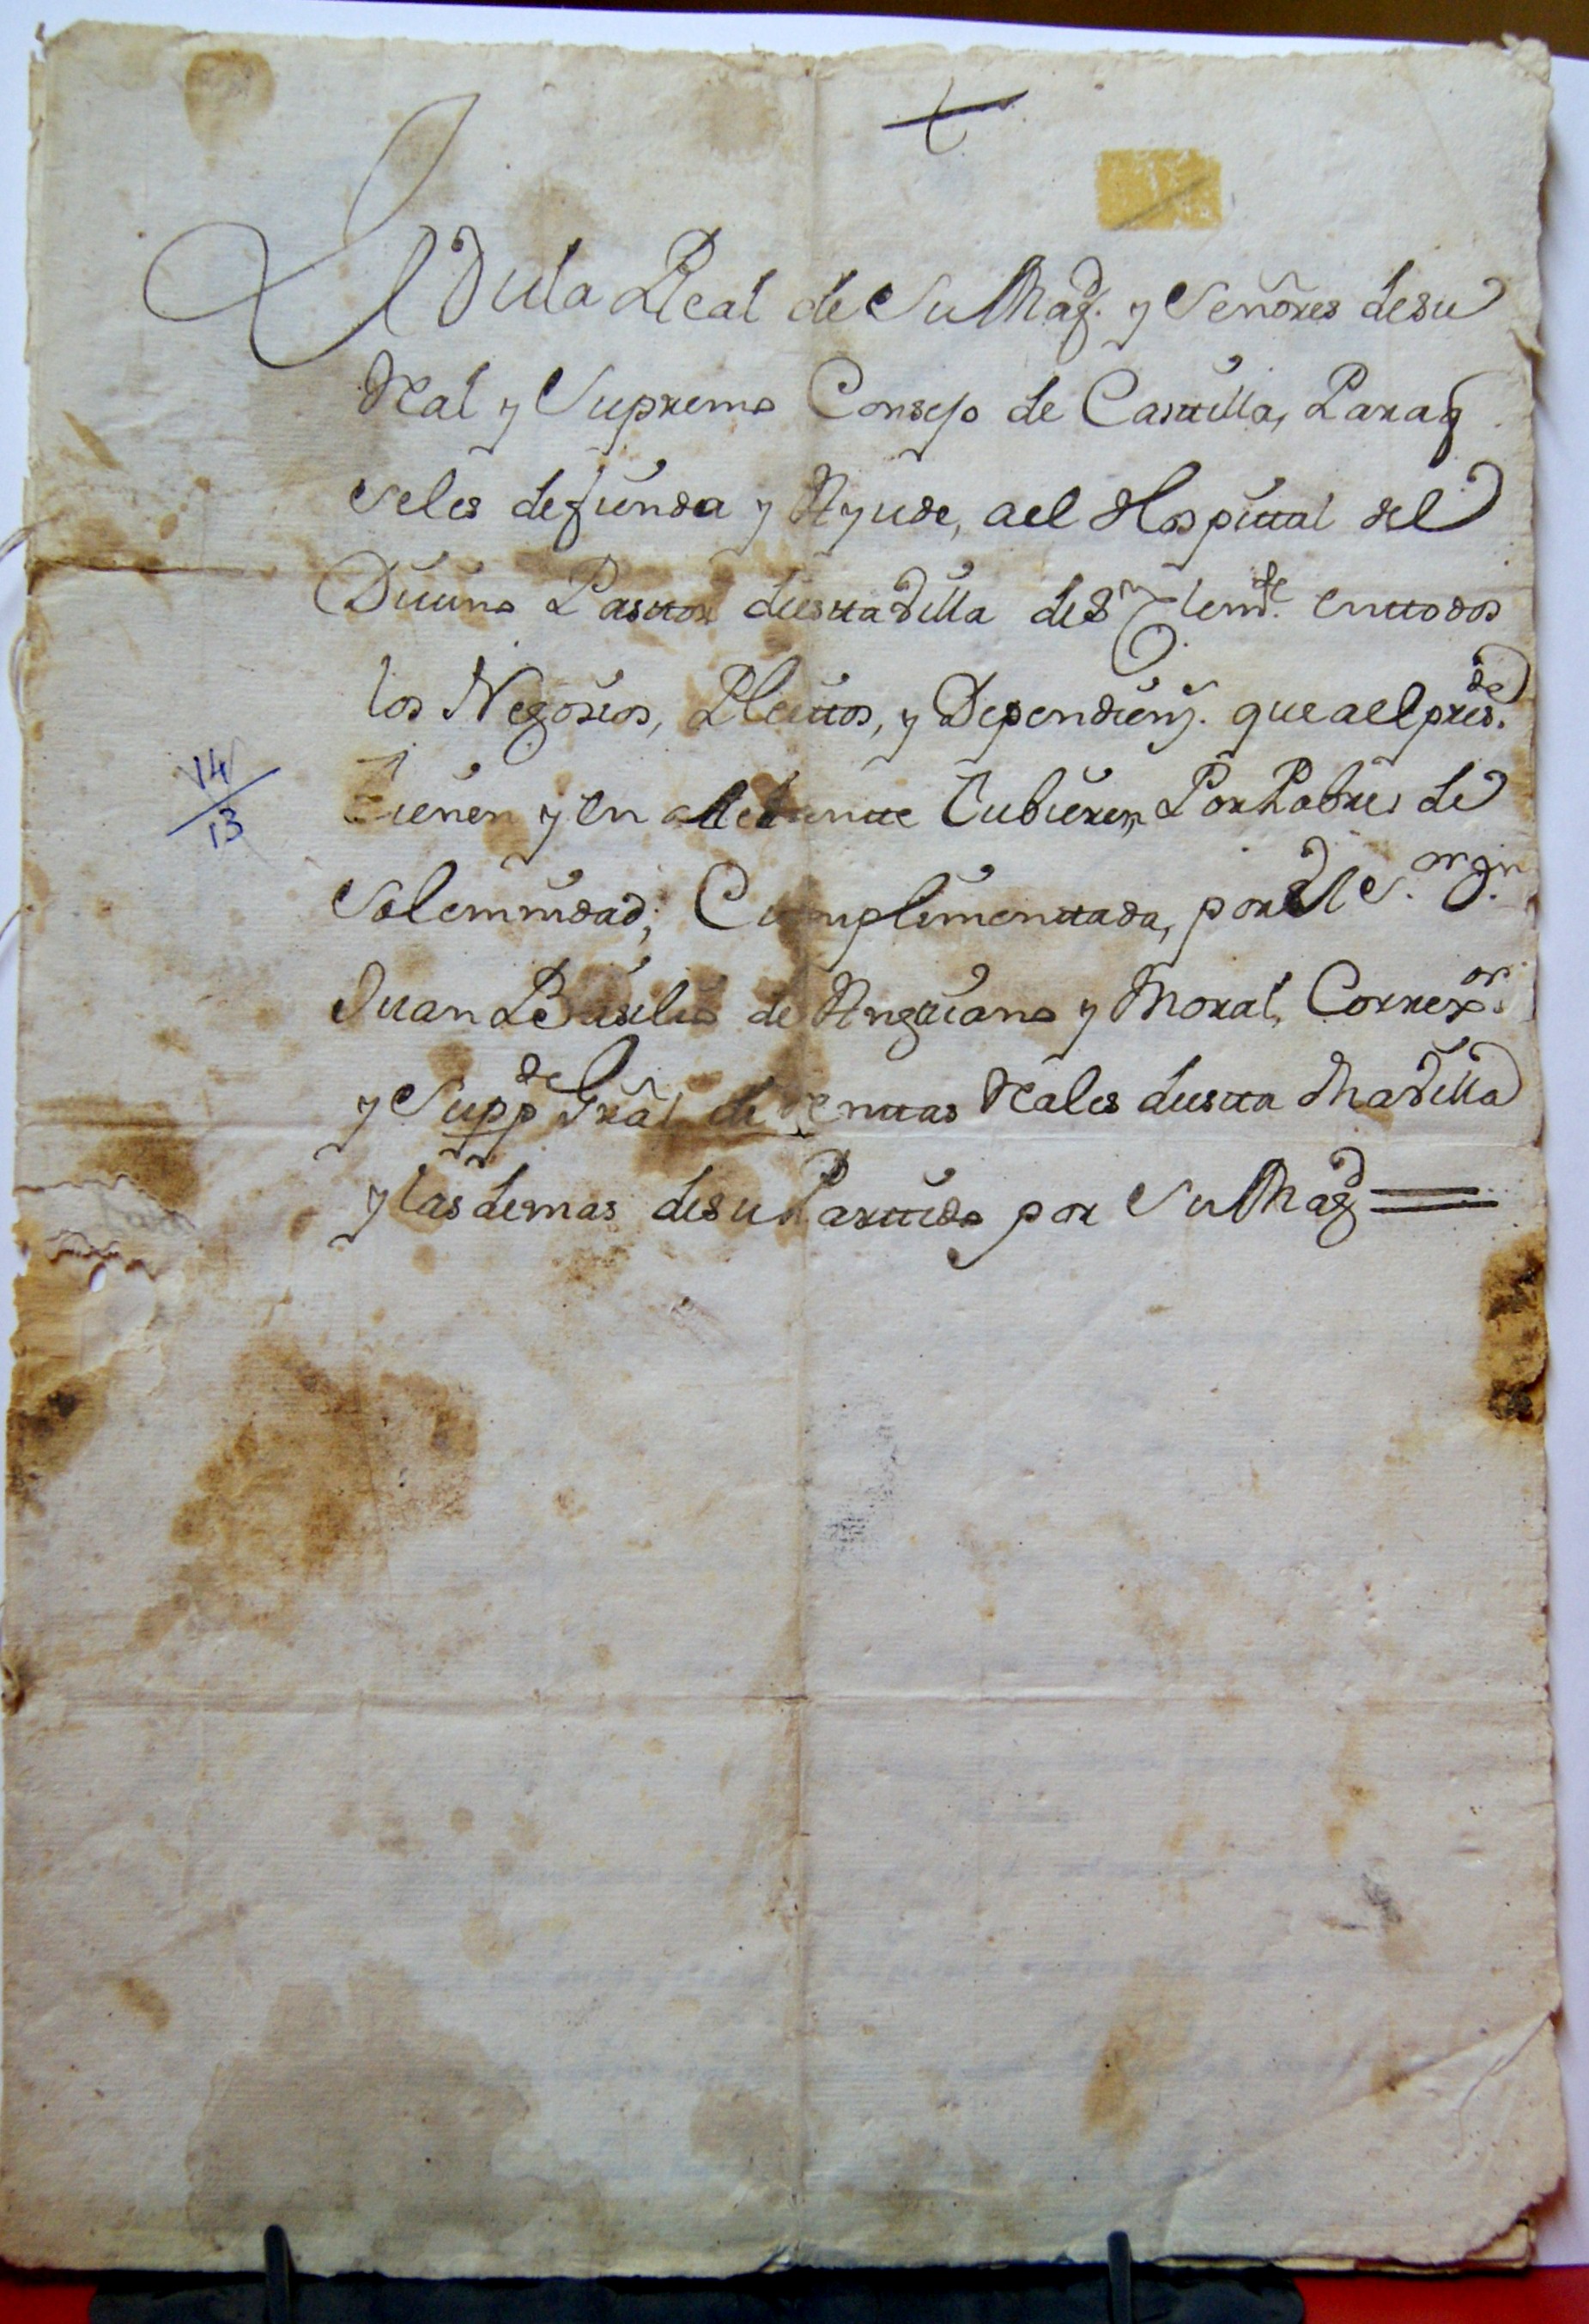 Cedula Real de Su Magd. y Señores desu
Real y Supremo Consejo de Castilla, Paraq
seles defienda y Ayude, ael Hospital del
Diuino Pastor desta Villa de Sn Clemte. en todos
los Negosios, Pleitos, y Dependiens. que ael presde.
tienen y en adelante tubieren Por Pobres de
Solemnidad; Cumplimentada, por el Sor. Dn.
Juan Basilio de Anguiano y Moral, Correxor.
y Suppde Gral de Rentas Reales desta dha Villa
y las demas desu Partido por Su Magd =
14/13